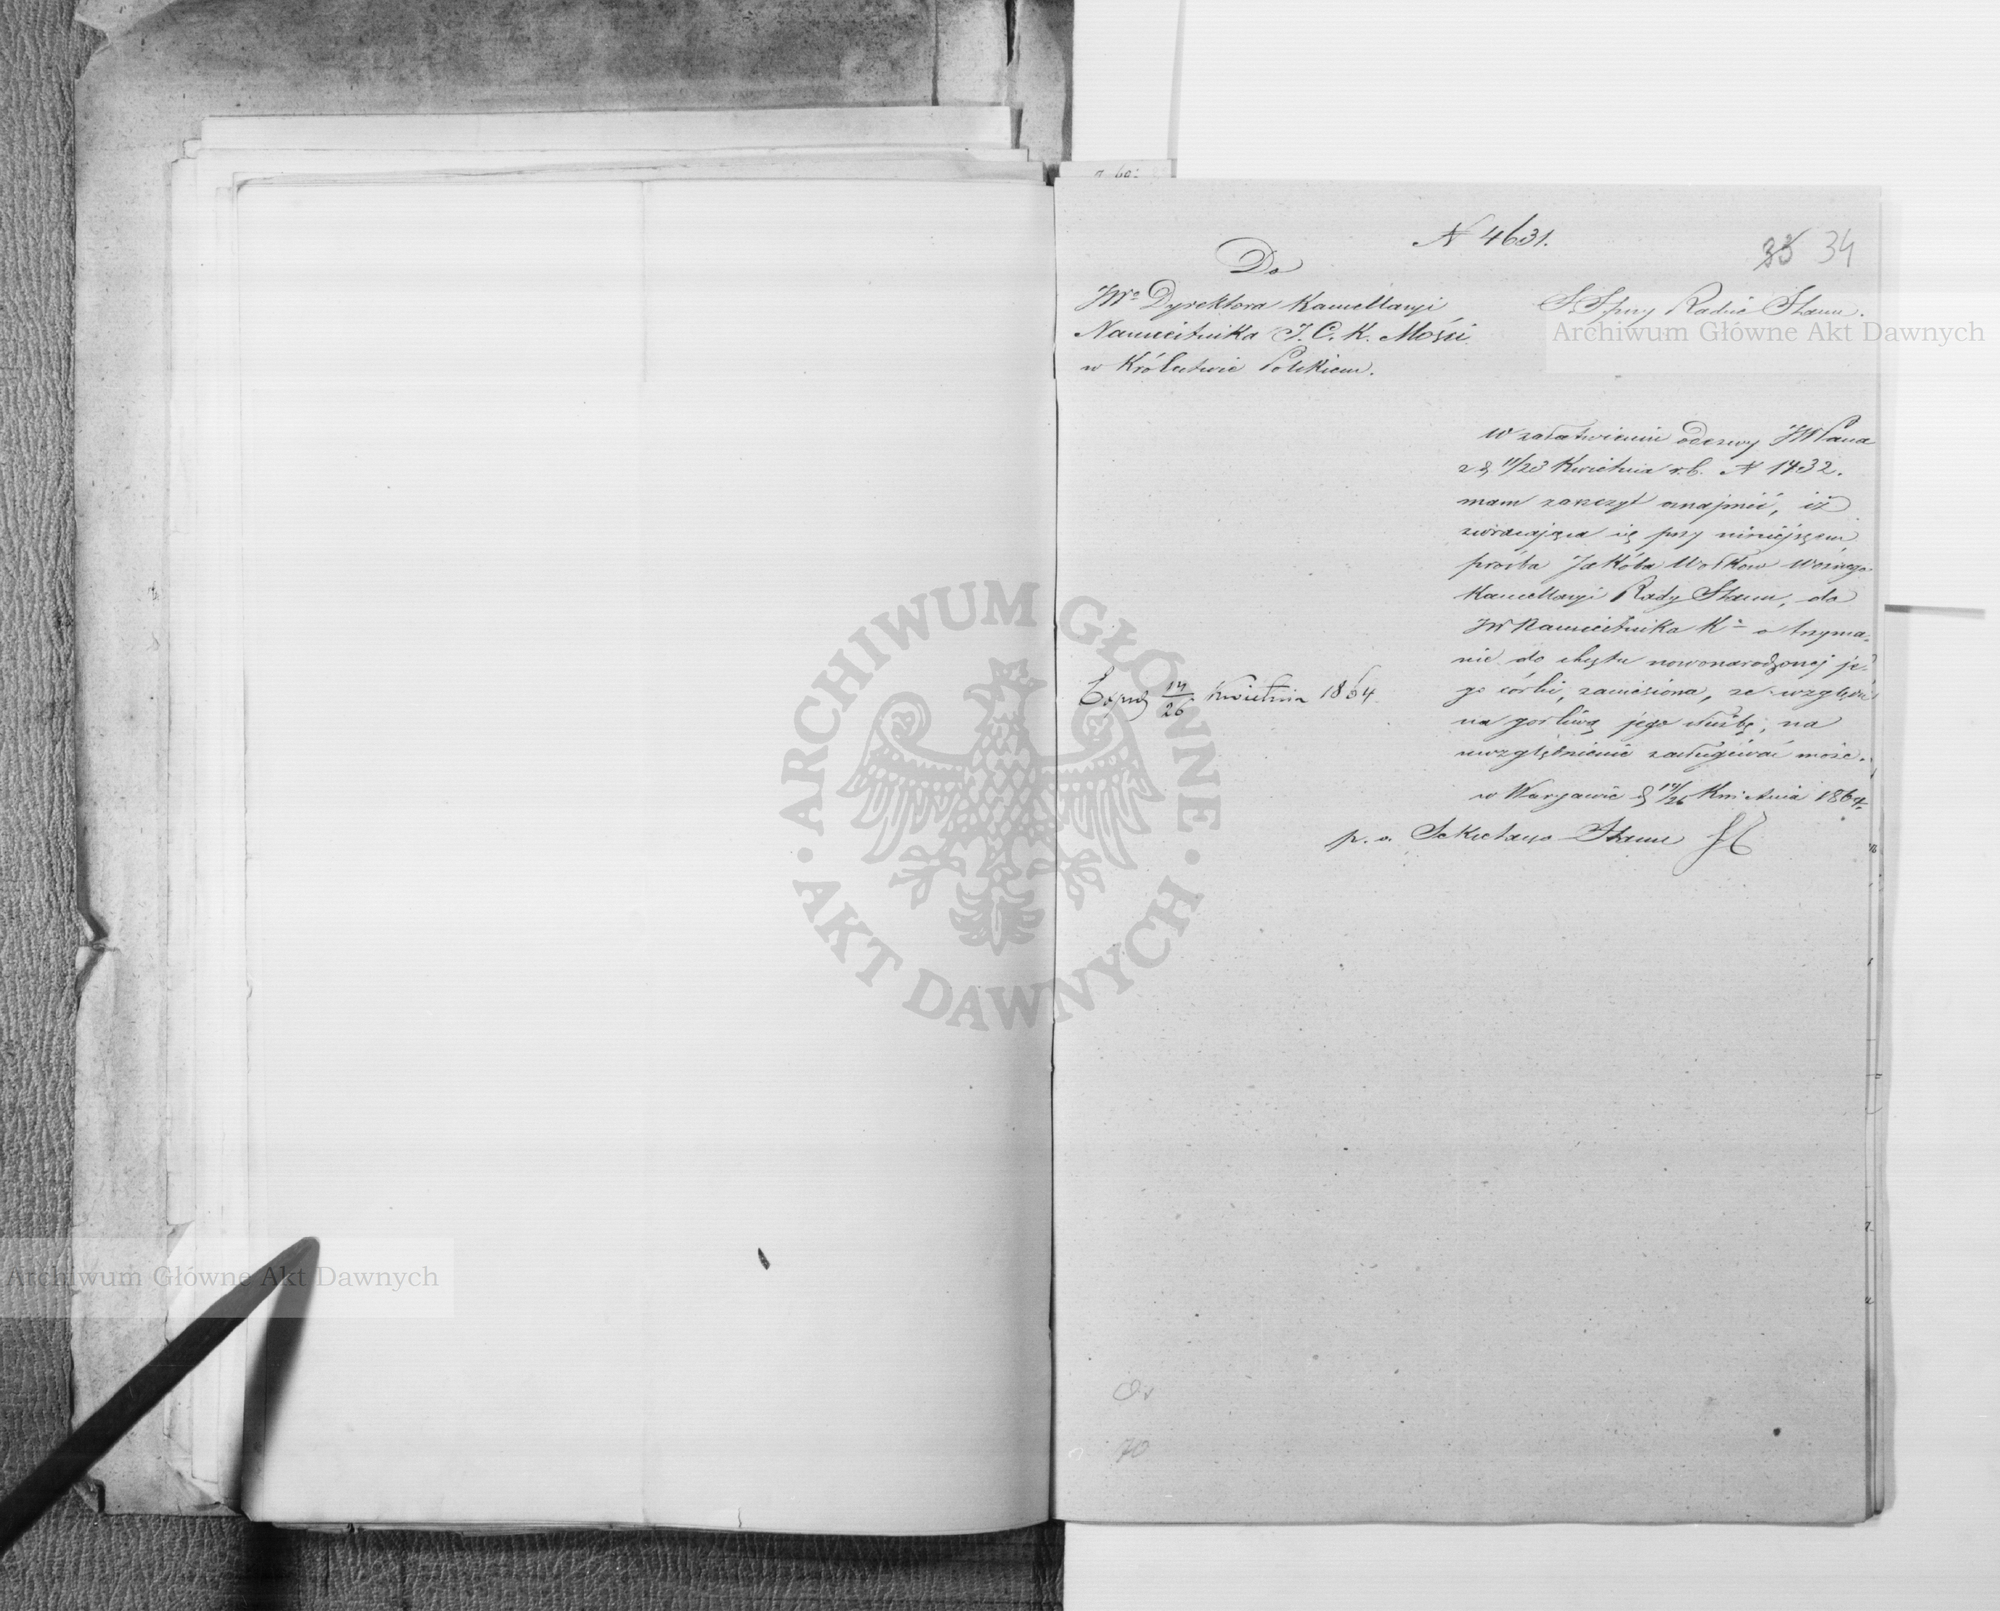 N 4631.
33 34
Do
JWo Dyrektora Kancellaryi
Namiestnika J. C. K. Mości
w Królestwie Polskiem.
S. S. przy Radzie Stanu.
Archiwum Główne Akt Dawnych
W załatwieniu odezwy JWPana
z d 11/23 Kwietnia r. b. N 1432.
mam zaszczyt oznajmić, iż
zwracająca się przy niniejszem
prośba Jakóba Wołkow Woźnego
Kancellaryi Rady Stanu, do
JW Namiestnika Kr o trzyma-
nie do chrztu nowonarodzonej je-
go córki, zaniesiona, ze względu
na gorliwą jego służbę, na
uwzględnienie zasługiwać może.
w Warszawie d 14/26 Kwietnia 1864
p. o. Sekretarza Stanu
Exped 14/26 Kwietnia 1864
ARCHIWUM GŁÓWNE
AKT DAWNYCH
Archiwum Główne Akt Dawnych
70